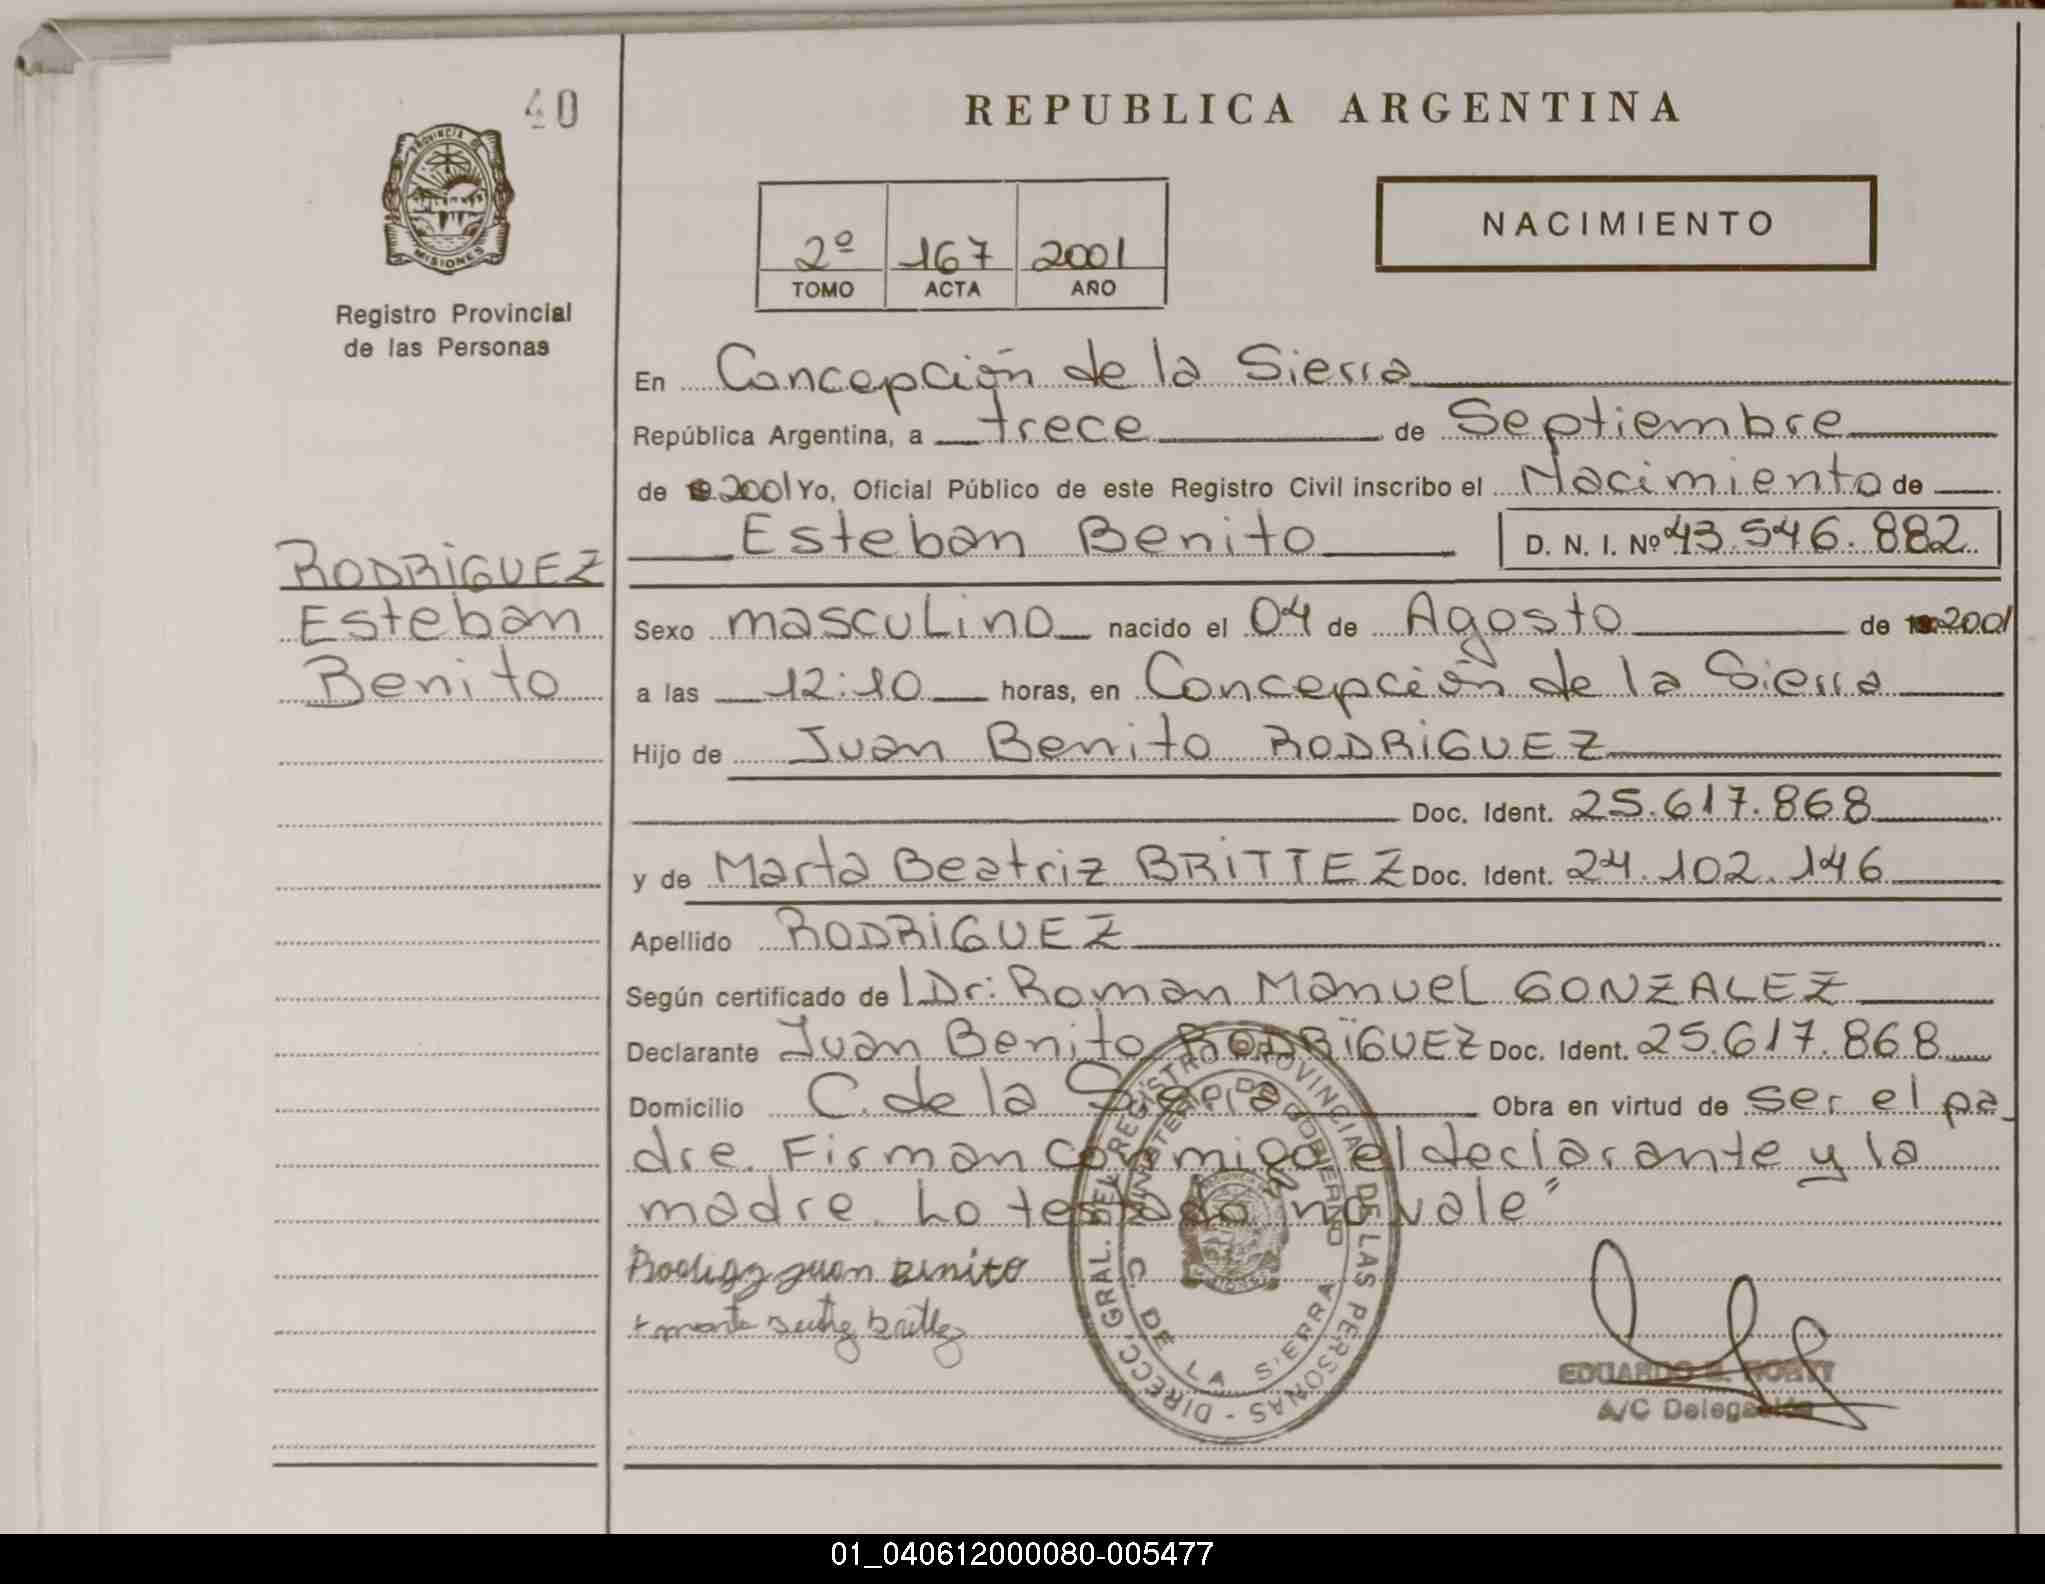 40
PROVINCIA DE
MISIONES
Registro Provincial
de las Personas
RODRIGUEZ
Esteban
Benito
REPUBLICA ARGENTINA
2º 167 2001
TOMO ACTA AÑO
NACIMIENTO
En Concepción de la Sierra
República Argentina, a trece de Septiembre
de 2001 Yo, Oficial Público de este Registro Civil inscribo el Nacimiento de
Esteban Benito D. N. I. Nº 43.546.882
Sexo masculino nacido el 04 de Agosto de 2001
a las 12:10 horas, en Concepción de la Sierra
Hijo de Juan Benito RODRIGUEZ
Doc. Ident. 25.617.868
y de Marta Beatriz BRITTEZ Doc. Ident. 24.102.146
Apellido RODRIGUEZ
Según certificado de l Dr: Roman Manuel GONZALEZ
Declarante Juan Benito RODRIGUEZ Doc. Ident. 25.617.868
Domicilio C. de la Sierra Obra en virtud de ser el pa
dre. Firman conmigo el declarante y la
madre. Lo testado no vale"
Juan Benito
DIRECC. GRAL. DEL REGISTRO PROVINCIAL DE LAS PERSONAS -
MINISTERIO DE GOBIERNO
C. DE LA SIERRA
EDUARDO
A/C Delegación
01_040612000080-005477